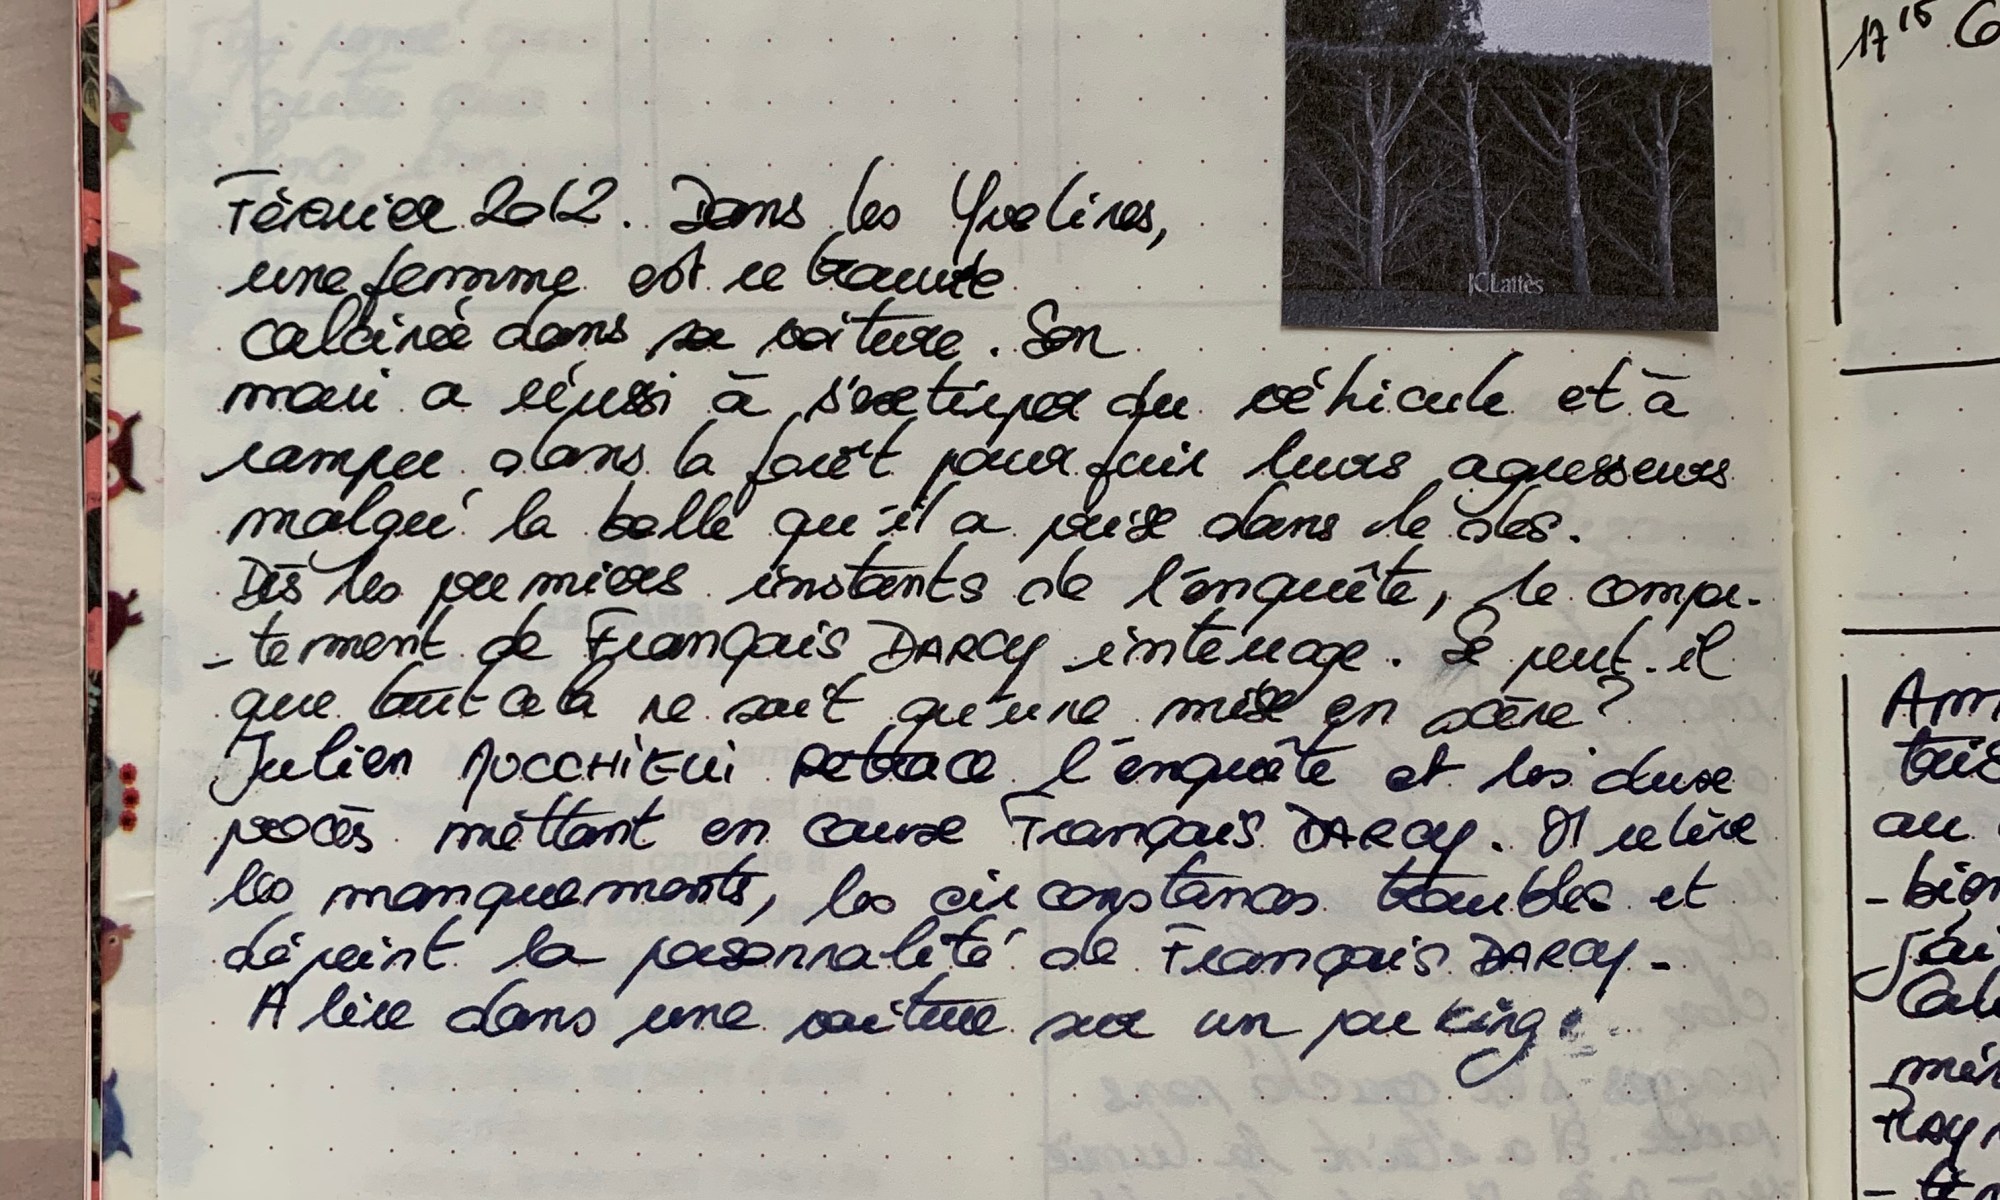 JCLattès
17 15
Février 2012. Dans les Yvelines,
une femme est retrouvée
calcinée dans sa voiture. Son
mari a réussi à s'extirper du véhicule et à
ramper dans la forêt pour fuir leurs agresseurs
malgré la balle qu'il a prise dans le dos.
Dès les premiers instants de l'enquête, le compor-
-tement de François DARCY interroge. Se peut-il
que tout cela ne soit qu'une mise en scène ?
Julien MUCCHIELLI retrace l'enquête et les deux
procès mettant en cause François DARCY. Il relève
les manquements, les circonstances troubles et
dépeint la personnalité de François DARCY.
A lire dans une voiture sur un parking !
au
- bien
j'ai